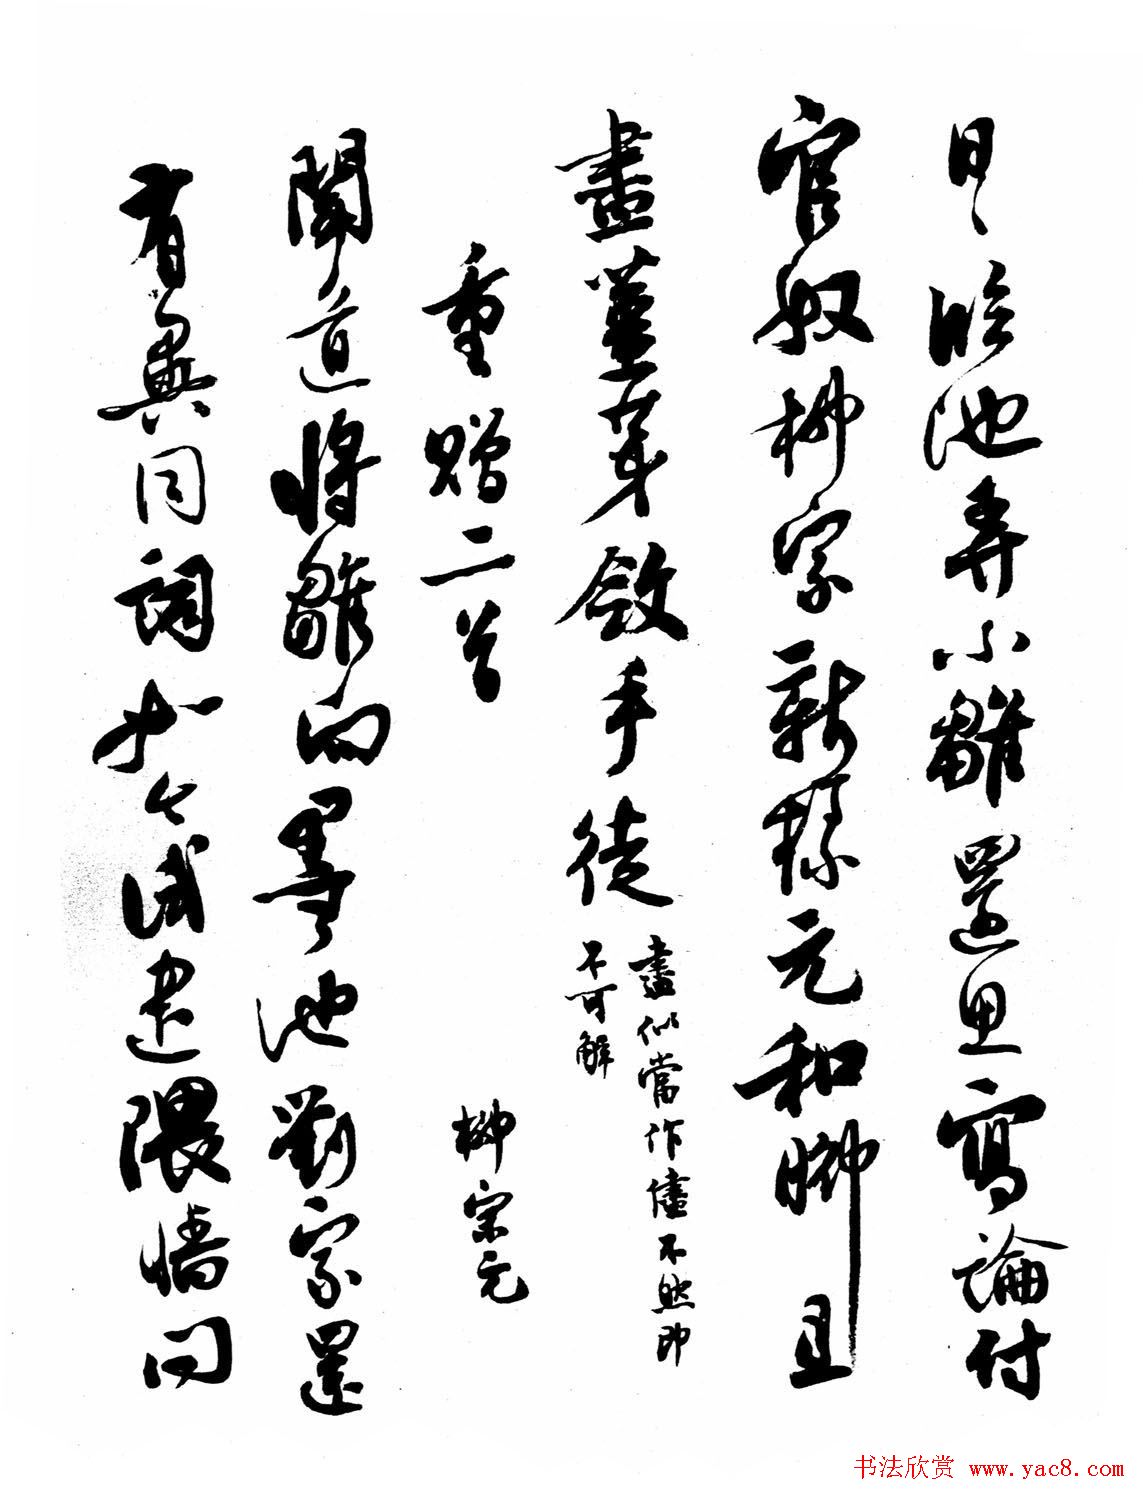 日〻臨池弄小雛還思寫論付
官奴柳家新樣元和脚且
盡薑芽斂手徒
盡似當作儘不然即
不可解
重贈二首 柳宗元
聞道將雛向墨池劉家還
有異同詞如今試遣隈牆問
书法欣赏 www.yac8.com